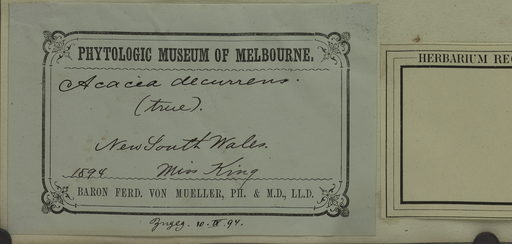 PHYTOLOGIC MUSEUM OF MELBOURNE.
Acacia decurrens.
(true).
New South Wales.
1894 Miss King
BARON FERD. VON MUELLER, PH. & M.D., LL.D.
10. IV. 94.
HERBARIUM RE